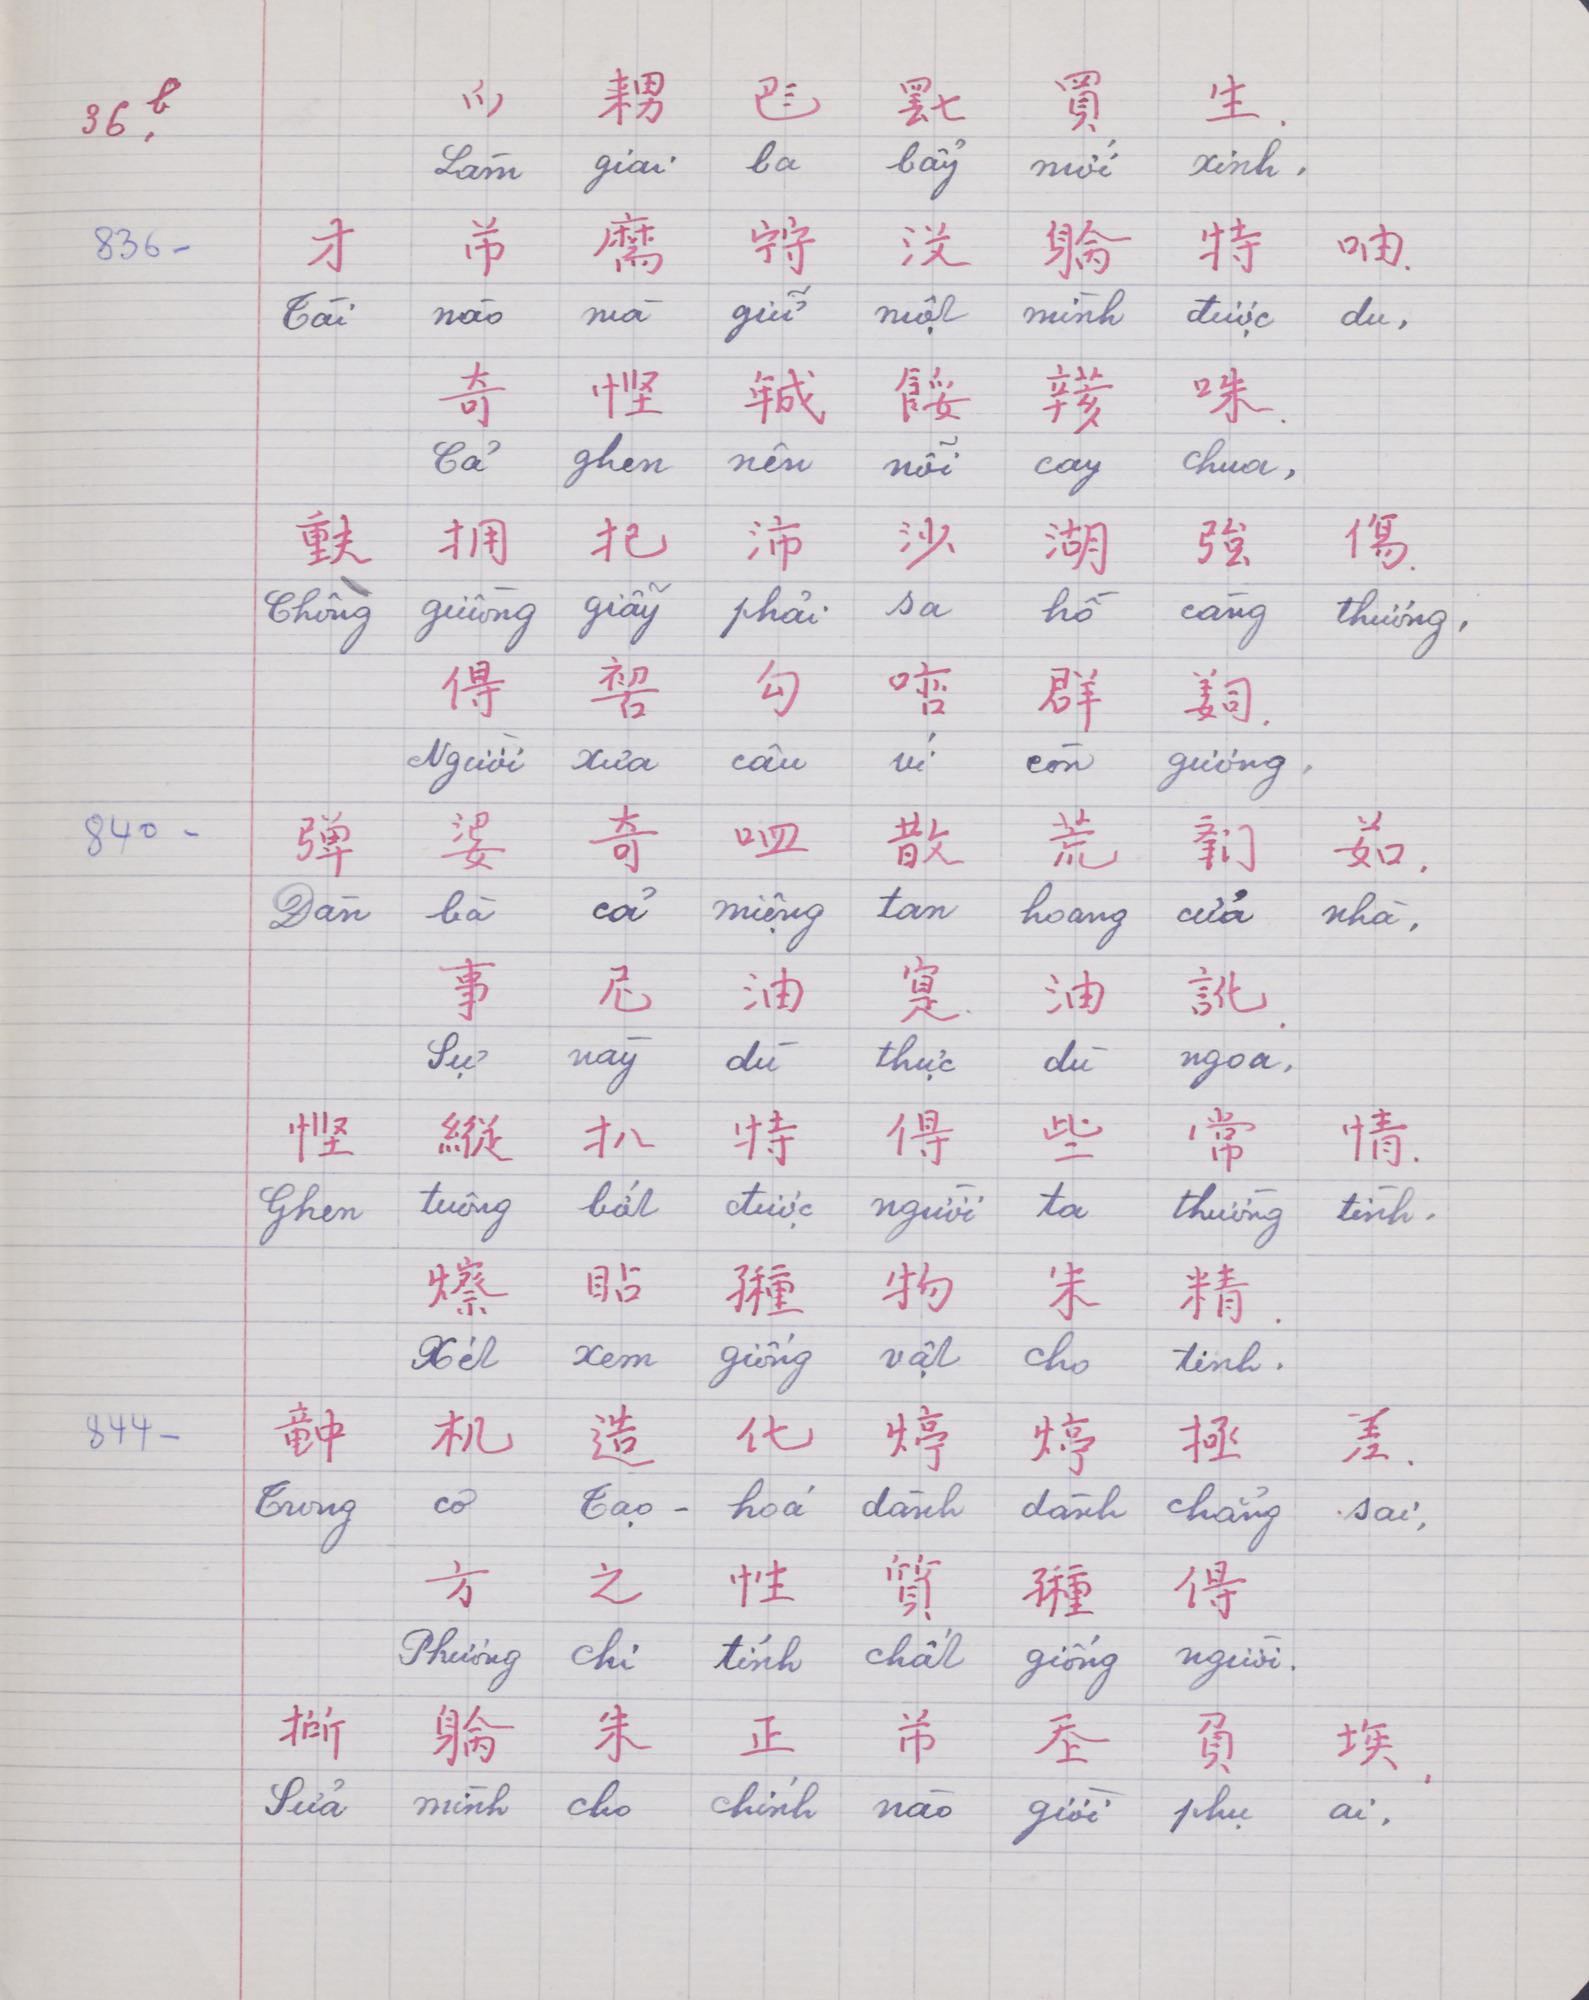 巴 𦉱 買 生.
36b.
Làm giai ba bẩy mới xinh.
836- 才 芇 𡨺 没 𨉟 特
Tài nào mà giữ một mình được du.
奇 悭 𢧚 餒 咮.
Cả ghen nên nỗi cay chua.
𫯳 拥 把 沛 沙 湖 強 傷.
Chồng giường giẫy phải sa hồ càng thương.
得 勾 群
Người xưa câu ví còn gương.
840- 弹 婆 奇 𠰘 散 荒 茹.
Đàn bà cả miệng tan hoang cửa nhà.
事 尼 油 寔 油 訛.
Sự nảy dù thực dù ngoa.
悭 縱 扒 特 得 些 常 情.
Ghen tuông bắt được người ta thường tình.
䀡 物 朱 精.
Xét xem giống vật cho tinh.
844- 𥪝 机 造 化 極 差.
Trong cơ Tạo-hoá dành dành chẳng sai.
方 之 性 質 得
Phương chi tính chất giống người.
𨉟 朱 正 芇 𡗶 負 埃.
Sửa mình cho chính nào giời phụ ai.